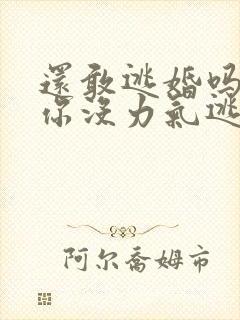 還敢逃婚吗
你没力氣逃
阿尔喬姆市